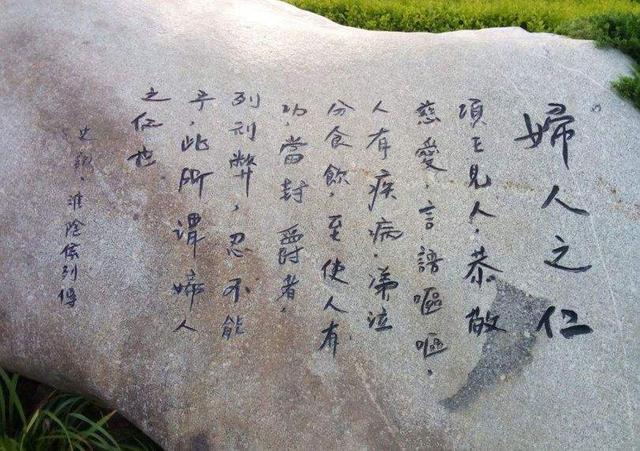 婦人之仁
項王見人，恭敬
慈愛，言語嘔嘔，
人有疾病，涕泣
分食飲，至使人有
功，當封爵者，
印刓弊，忍不能
予，此所謂婦人
之仁也.
史記．淮陰侯列傳